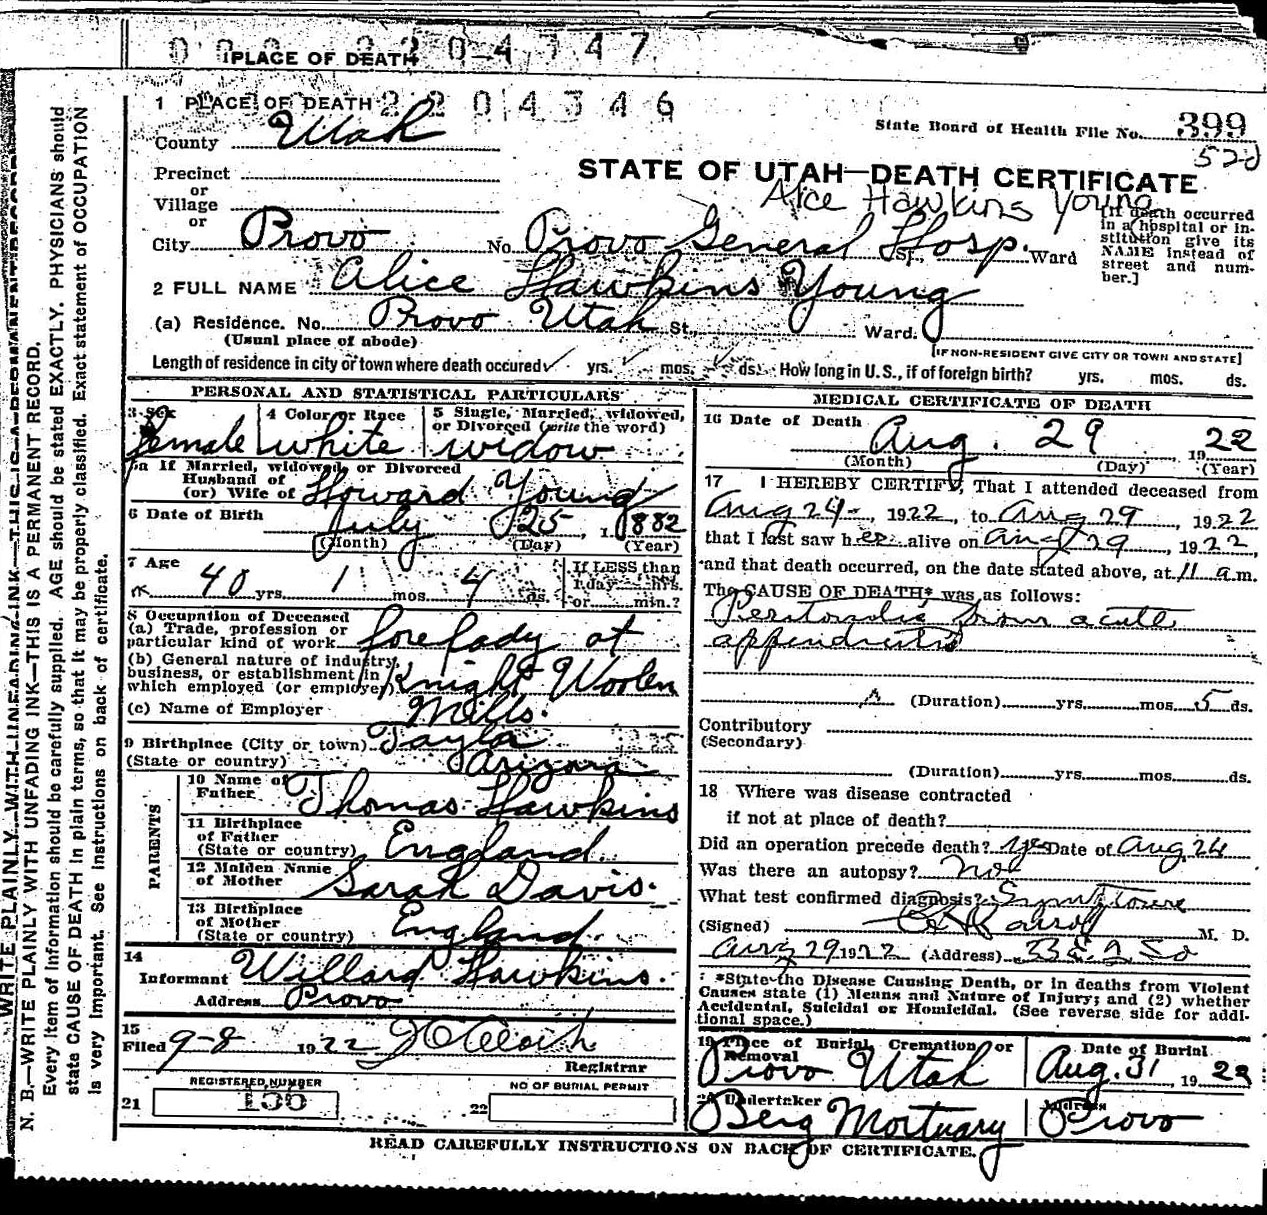 PLACE OF DEATH
2 2 0 4 3 4 6
1 PLACE OF DEATH
County Utah
State Board of Health File No. 399
520
Precinct
or
Village
or
STATE OF UTAH—DEATH CERTIFICATE
Alice Hawkins Young
City Provo No. Provo General Hosp. St., Ward
[If death occurred in a hospital or institution give its NAME instead of street and number.]
2 FULL NAME Alice Hawkins Young
(a) Residence. No. Provo Utah St., Ward.
(Usual place of abode)
[IF NON-RESIDENT GIVE CITY OR TOWN AND STATE]
Length of residence in city or town where death occured yrs. mos. ds. How long in U.S., if of foreign birth? yrs. mos. ds.
PERSONAL AND STATISTICAL PARTICULARS
3 Sex female
4 Color or Race white
5 Single, Married, widowed, or Divorced (write the word) widow
5a If Married, widowed, or Divorced
Husband of
(or) Wife of Howard Young
6 Date of Birth July 25, 1882
(Month) (Day) (Year)
7 Age 40 yrs. 1 mos. 4 ds.
If LESS than 1 day hrs. or min.?
8 Occupation of Deceased
(a) Trade, profession or particular kind of work forelady at
(b) General nature of industry, business, or establishment in which employed (or employer) Knight Woolen
(c) Name of Employer Mills.
9 Birthplace (City or town) Tayla
(State or country) Arizona
PARENTS
10 Name of Father Thomas Hawkins
11 Birthplace of Father (State or country) England
12 Maiden Name of Mother Sarah Davis.
13 Birthplace of Mother (State or country) England.
14
Informant Willard Hawkins.
Address Provo
15
Filed 9-8 1922
Registrar
REGISTERED NUMBER
21 155
NO OF BURIAL PERMIT
22
MEDICAL CERTIFICATE OF DEATH
16 Date of Death Aug. 29 1922
(Month) (Day) (Year)
17 I HEREBY CERTIFY, That I attended deceased from
Aug 24, 1922, to Aug 29, 1922
that I last saw her alive on Aug 29, 1922,
and that death occurred, on the date stated above, at 11 a m.
The CAUSE OF DEATH* was as follows:
Peritonitis from acute
appendicitis
(Duration) yrs. mos. 5 ds.
Contributory
(Secondary)
(Duration) yrs. mos. ds.
18 Where was disease contracted
if not at place of death?
Did an operation precede death? yes Date of Aug. 24
Was there an autopsy? No
What test confirmed diagnosis?
(Signed) M. D.
Aug 29 1922 (Address)
*State the Disease Causing Death, or in deaths from Violent
Causes state (1) Means and Nature of Injury; and (2) whether
Accidental, Suicidal or Homicidal. (See reverse side for addi-
tional space.)
19 Place of Burial, Cremation or Removal Provo Utah
Date of Burial Aug. 31, 1922
20 Undertaker Berg Mortuary
Address Provo
READ CAREFULLY INSTRUCTIONS ON BACK OF CERTIFICATE.
WRITE PLAINLY WITH UNFADING INK—THIS IS A PERMANENT RECORD
N. B.—WRITE PLAINLY WITH UNFADING INK—THIS IS A PERMANENT RECORD.
Every item of information should be carefully supplied. AGE should be stated EXACTLY. PHYSICIANS should
state CAUSE OF DEATH in plain terms, so that it may be properly classified. Exact statement of OCCUPATION
is very important. See instructions on back of certificate.